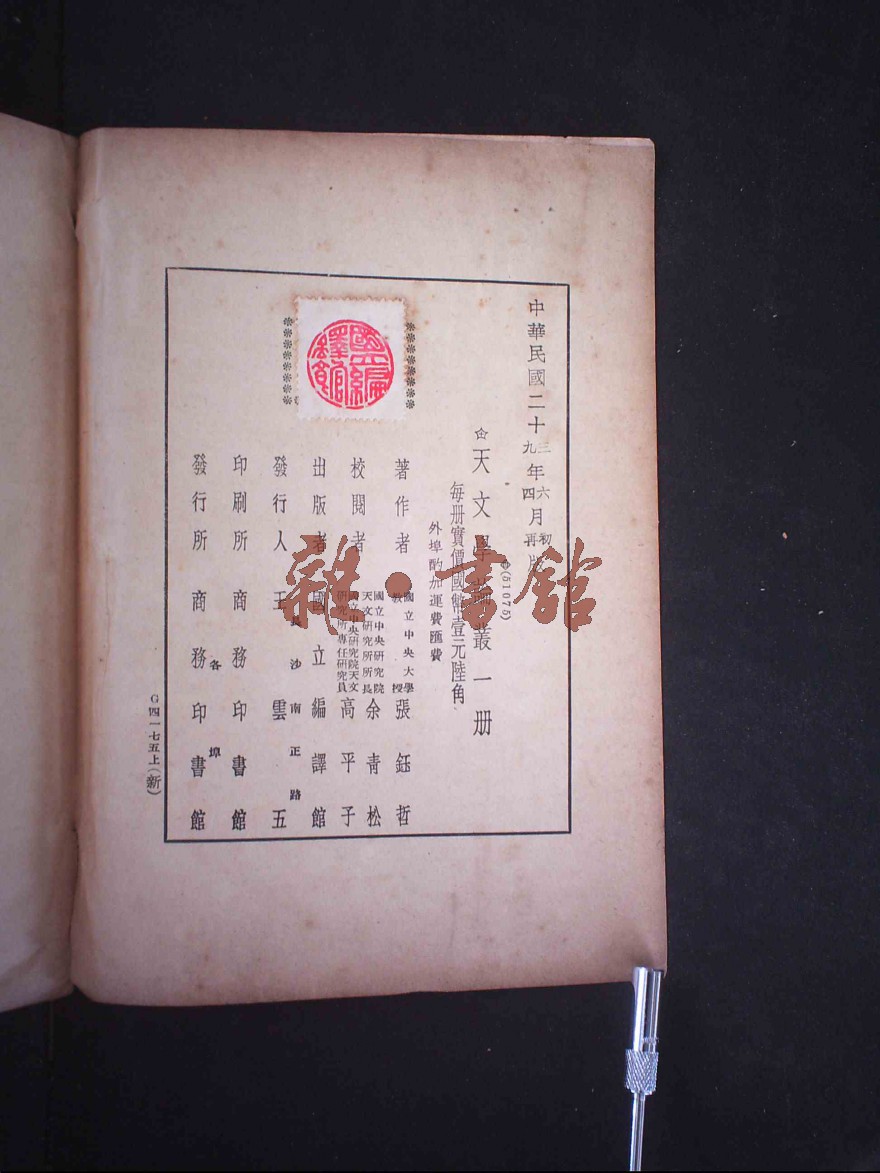 中華民國二十三年六月初版
九年四月再版
(51075)
天文學論叢一册
每册實價國幣壹元陸角
外埠酌加運費匯費
著作者 國立中央大學教授 張鈺哲
校閱者 國立中央研究院天文研究所所長 余青松
國立中央研究院天文研究所專任研究員 高平子
出版者 國立編譯館
長沙南正路
發行人 王雲五
印刷所 商務印書館
各埠
發行所 商務印書館
G四一七五上(新)
國立編譯館
雜·書館